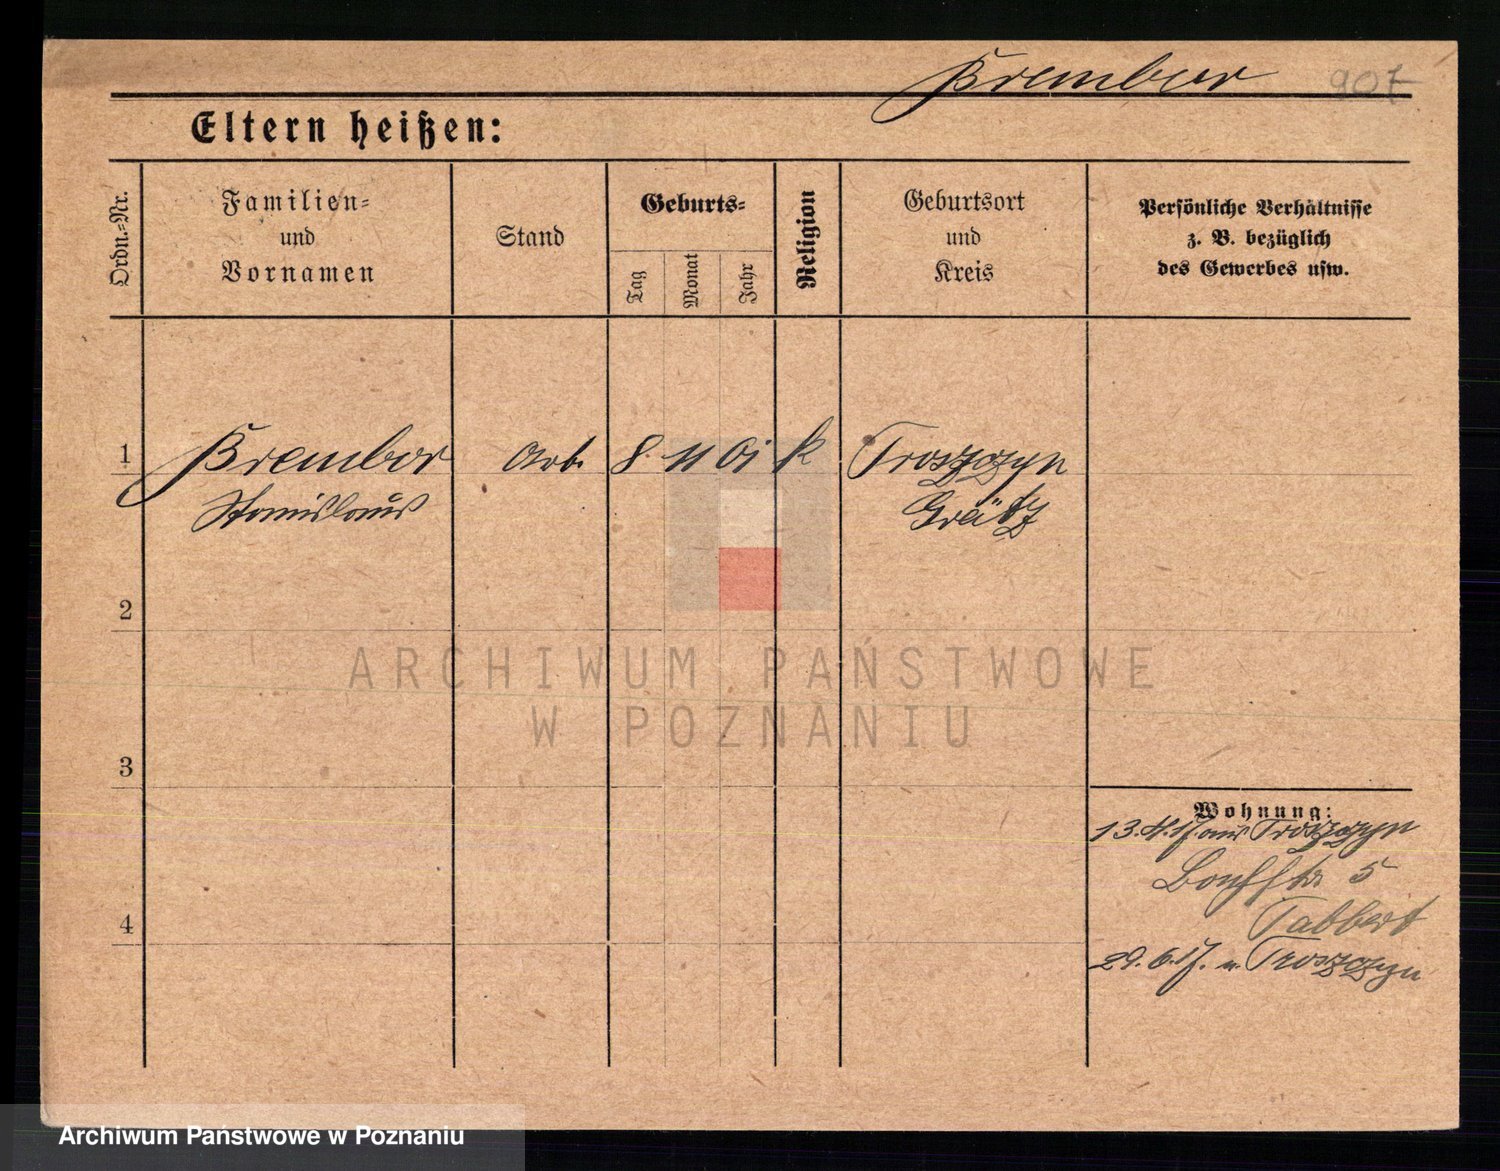 Brembor 907
Eltern heißen:
Ordn.=Nr.
Familien=
und
Vornamen
Stand
Geburts=
Tag
Monat
Jahr
Religion
Geburtsort
und
Kreis
Persönliche Verhältnisse
z. B. bezüglich
des Gewerbes usw.
1 Brembor Arb. 8. 11 01 k Troszczyn
Stanislaus Grätz
2
3
4
Wohnung:
13.4.17. aus Troszczyn
5
Tabbert
29.6.17. n. Troszczyn
ARCHIWUM PAŃSTWOWE
W POZNANIU
Archiwum Państwowe w Poznaniu